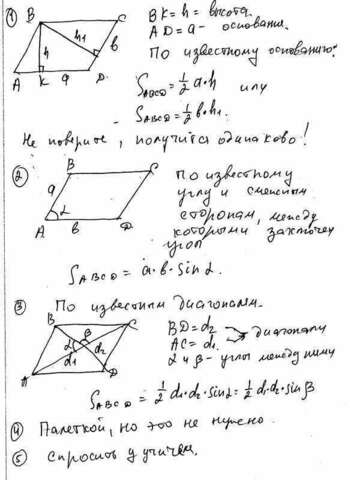 ① B C BK = h = высота.
h h₁ b AD = a - основание.
A K a D По известному основанию:
S_ABCD = 1/2 a·h или
S_ABCD = 1/2 b·h₁.
Не поверите, получится одинаково!
② B C По известному
a углу и смежным
A α b D сторонам, между
которыми заключен
угол
S_ABCD = a·b·sin α.
③ По известным диагоналям.
B C BD = d₂ диагонали
α β AC = d₁
A d₁ d₂ D α и β - углы между ними
S_ABCD = 1/2 d₁·d₂·sin α = 1/2 d₁·d₂·sin β
④ Палеткой, но это не нужно.
⑤ Спросить у учителя.